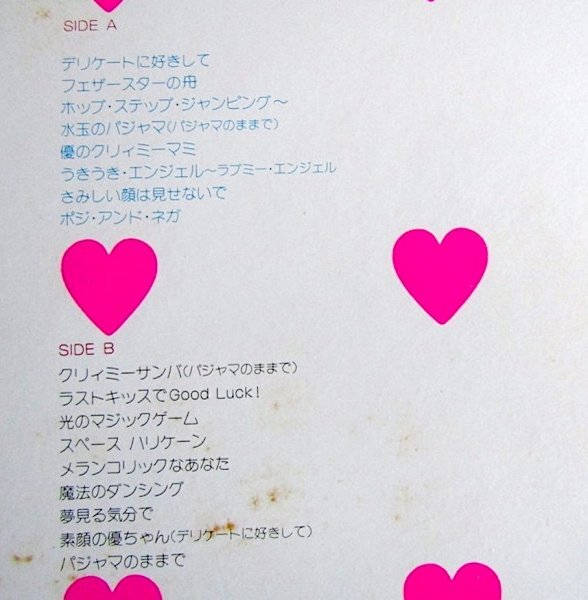 SIDE A
デリケートに好きして
フェザースターの舟
ホップ・ステップ・ジャンピング〜
水玉のパジャマ(パジャマのままで)
優のクリィミーマミ
うきうき・エンジェル〜ラブミー・エンジェル
さみしい顔は見せないで
ポジ・アンド・ネガ
SIDE B
クリィミーサンバ(パジャマのままで)
ラストキッスでGood Luck!
光のマジックゲーム
スペース ハリケーン
メランコリックなあなた
魔法のダンシング
夢見る気分で
素顔の優ちゃん(デリケートに好きして)
パジャマのままで